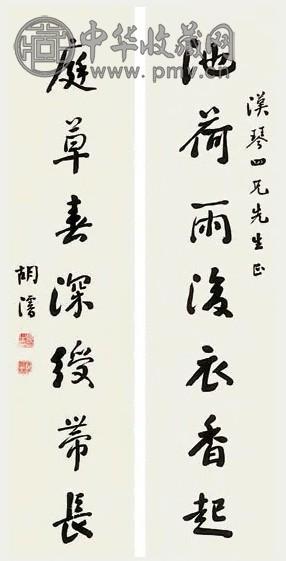 中华收藏网
漢琴四兄先生正
池荷雨後衣香起
庭草春深綬帶長
胡